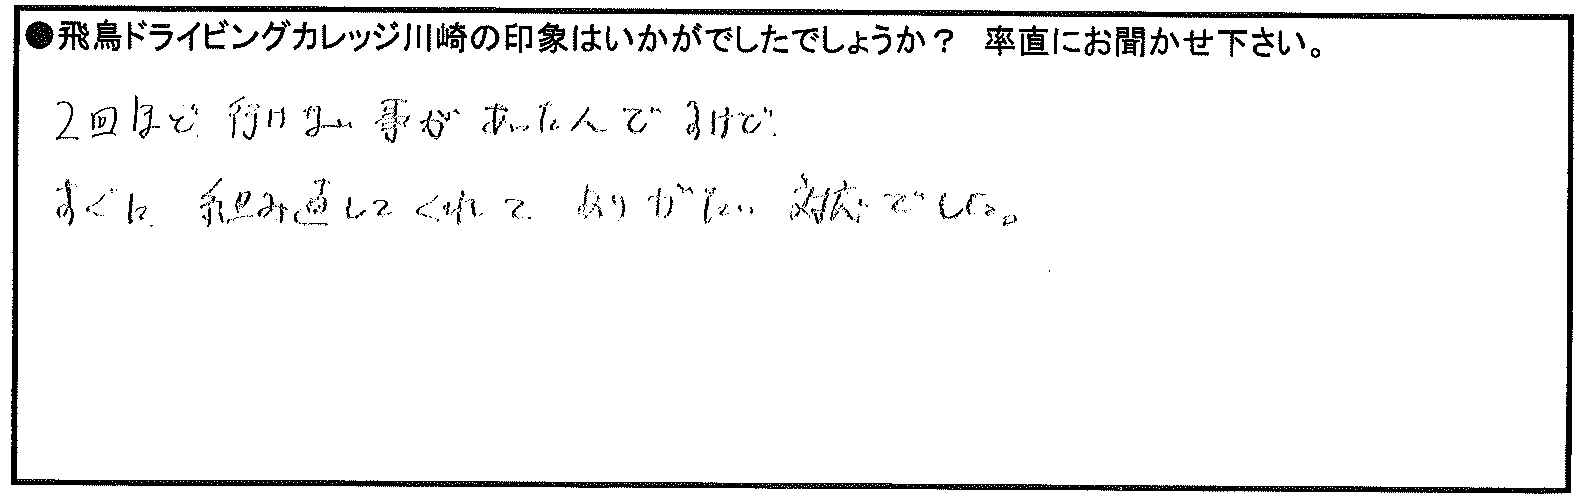 ●飛鳥ドライビングカレッジ川崎の印象はいかがでしたでしょうか？ 率直にお聞かせ下さい。
2回ほど、行けない事があったんですけど、
すぐに、組み直してくれて、ありがたい対応でした。